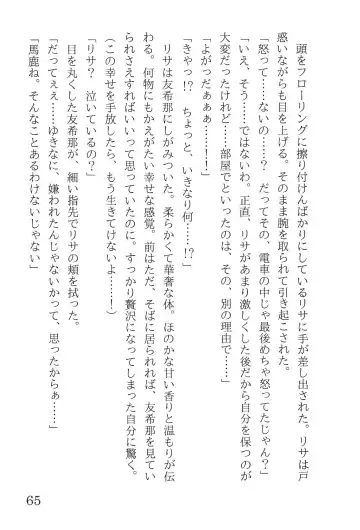 頭をフローリングに擦り付けんばかりにしているリサに手が差し出された。リサは戸
惑いながらも目を上げる。そのまま腕を取られて引き起こされた。
「怒って……ないの……？　だってその、電車の中じゃ最後めちゃ怒ってたじゃん？」
「いえ、そう……ではないわ。正直、リサがあまり激しくした後だから自分を保つのが
大変だったけれど……部屋でといったのは、その、別の理由で……」
「よがっだぁぁぁ……！！」
「きゃっ！？　ちょっと、いきなり何……！？」
リサは友希那にしがみついた。柔らかくて華奢な体。ほのかな甘い香りと温もりが伝
わる。何物にもかえがたい幸せな感覚。前はただ、そばに居られれば、友希那を見てい
られさえすればいいって思っていたのに。すっかり贅沢になってしまった自分に驚く。
（この幸せを手放したら、もう生きてけないよ……！）
「リサ？　泣いているの？」
目を丸くした友希那が、細い指先でリサの頬を拭った。
「だってぇぇ……ゆきなに、嫌われたんじゃないかって、思ったからぁ……」
「馬鹿ね。そんなことあるわけないじゃない」
65